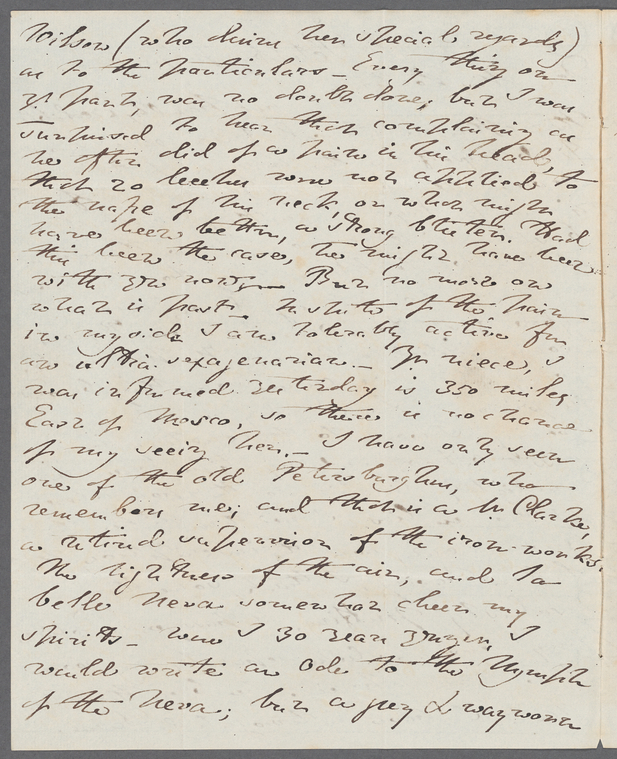 Wilson (who desires her special regards)
as to the particulars – Every thing on
yr part, was no doubt done; but I was
surprised to hear that complaining as
he often did of a pain in his head, to
that 20 leeches were not applied to
the nape of his neck, or what might
have been better, a strong blister. Had
this been the case, he might have been
with you now – But no more on
what is past. In spite of the pain
in my side I am tolerably active for
an ultra-sexagenarian. – Yr niece, I
was informed yesterday is 350 miles
East of Mosco, so there is no chance
of my seeing her. – I have only seen
one of the old Petersburghers, who
remembers me; and that is a Mr Clarke,
a retired supervisor of the iron works.
The lightness of the air, and la
belle Neva somewhat cheer my
spirits – were I 30 years younger, I
would write an Ode to the Nymph
of the Neva; but a grey & wayworn